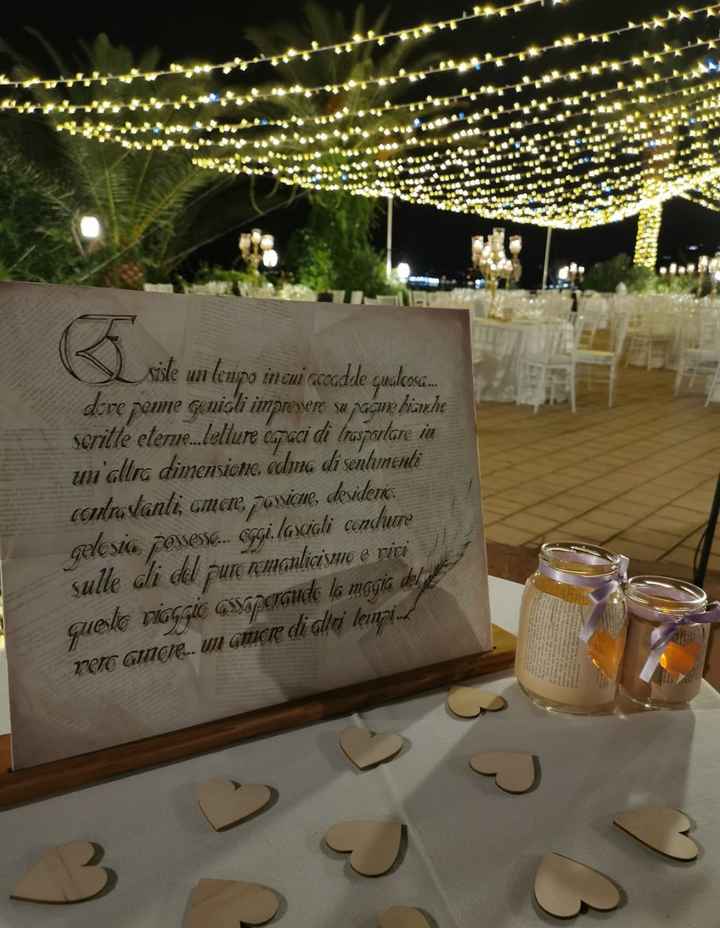 Esiste un tempo in cui accadde qualcosa...
dove penne geniali impressero su pagine bianche
scritte eterne...letture capaci di trasportare in
un'altra dimensione, colma di sentimenti
contrastanti, amore, passione, desiderio,
gelosia, possesso... oggi, lasciati condurre
sulle ali del puro romanticismo e vivi
questo viaggio assaporando la magia del
vero amore... un amore di altri tempi...